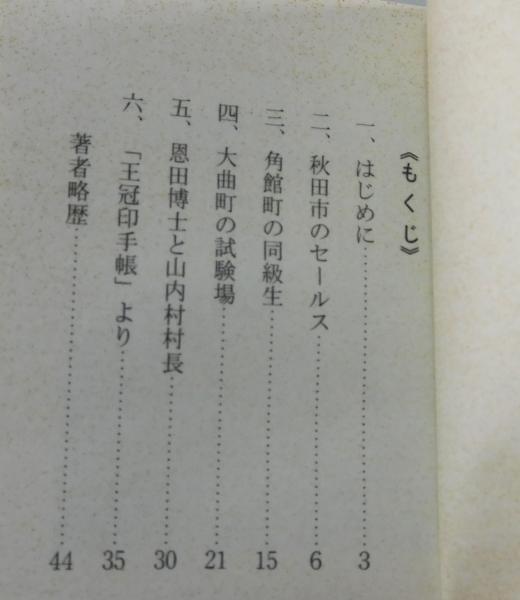 《もくじ》
一、はじめに……………………3
二、秋田市のセールス……………………6
三、角館町の同級生……………………15
四、大曲町の試験場……………………21
五、恩田博士と山内村村長……………………30
六、「王冠印手帳」より……………………35
著者略歴……………………44